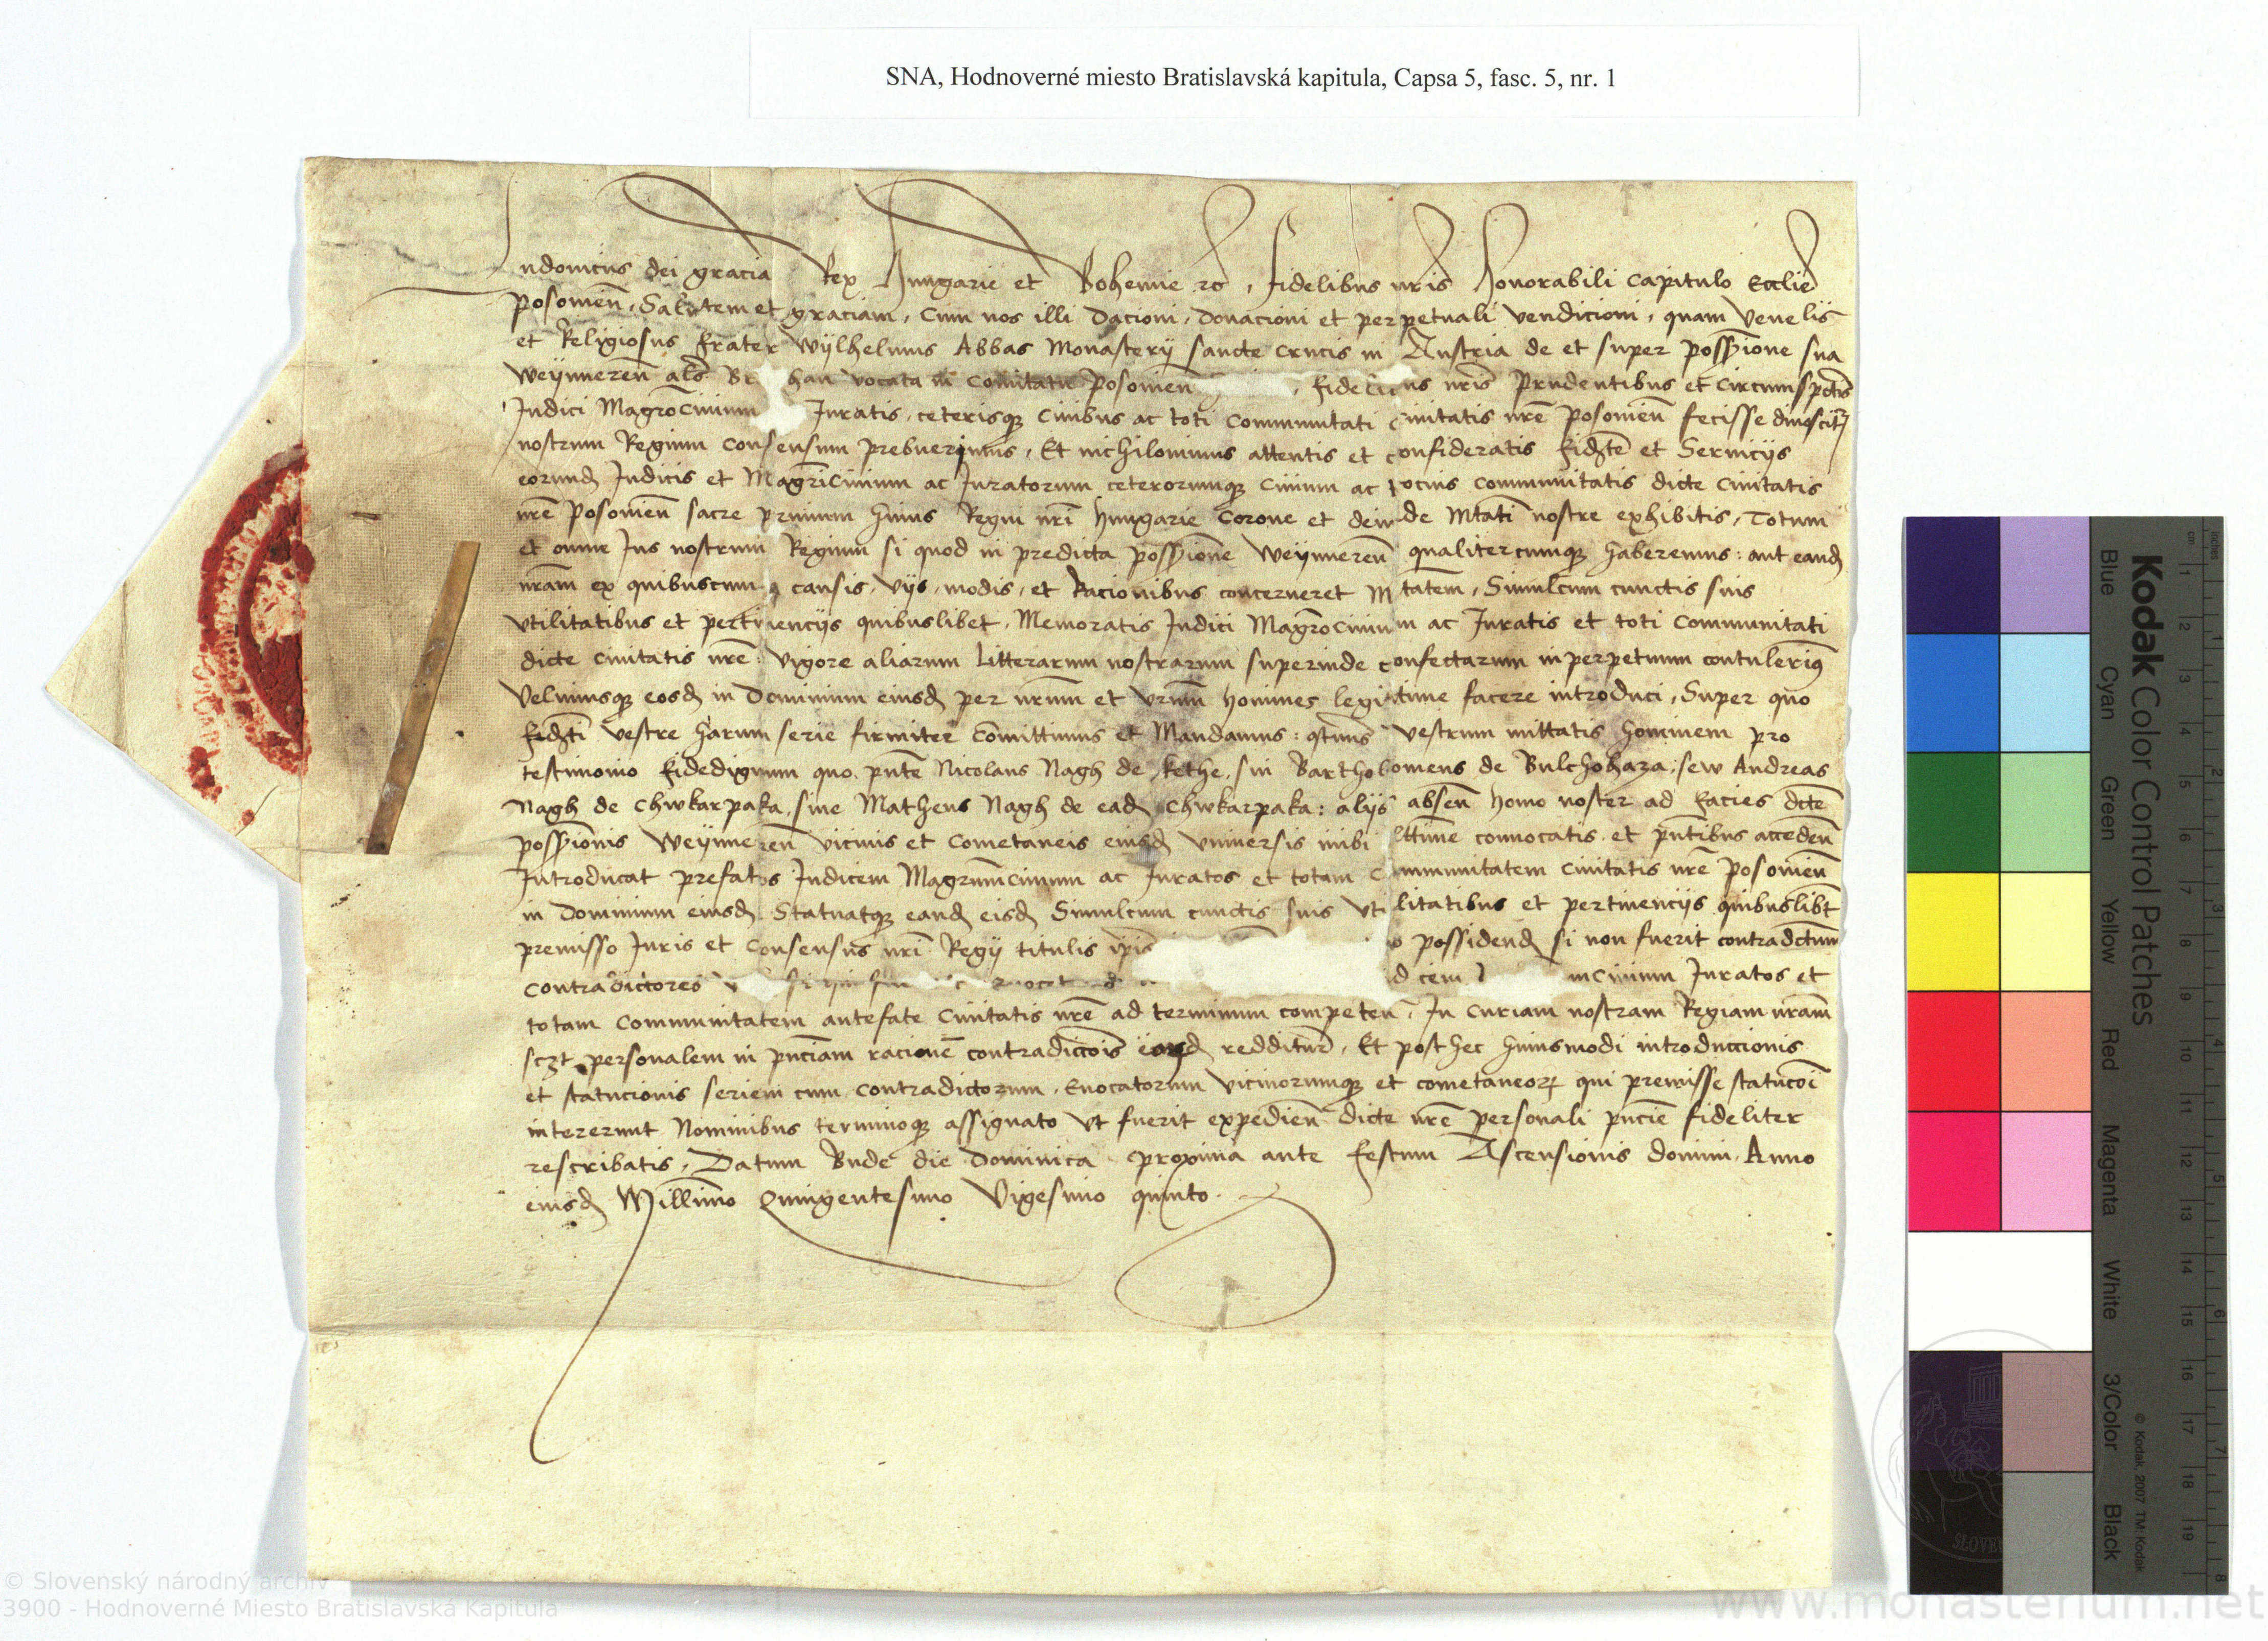 SNA, Hodnoverné miesto Bratislavská kapitula, Capsa 5, fasc. 5, nr. 1
Ludouicus dei gracia Rex Hungarie et Bohemie rc̄. fidelibus nr̄is Honorabili Capitulo Ecclīe
posonien̄. Salutem et graciam. Cum nos illi Dacioni, donacioni et perpetuali vendicioni, quam Venelis̄
et Religiosus frater Wylhelmus Abbas Monasterij sancte Crucis in Austria de et super poss̄ione sua
Weynneren̄ al̄s vocata in Comitatu posonien̄ nr̄is prudentibus et Circumspectis
Judici Magr̄ociuium Juratis, ceterisq̄ ciuibus ac toti Communitati Ciuitatis nr̄e posonien̄ fecisse dinoscitr̄
nostrum Regium Consensum prebuerimus, Et nichilominus attentis et consideratis fid̄te et Seruicijs
eorund̄ Judicis et Magr̄iciuium ac Juratorum ceterorumq̄ Ciuium ac tocius communitatis dicte Ciuitatis
nr̄e posonien̄ sacre primum huius Regni nr̄i hungarie Corone et deinde Mtati nostre exhibitis, Totum
et omne Jus nostrum Regium si quod in predicta poss̄ione Weynneren̄ qualitercumq̄ haberemus: aut eand̄
nr̄am ex quibuscumq̄ causis, vijs, modis, et Racionibus concerneret Mtatem, Simulcum cunctis suis
vtilitatibus et pertinencijs quibuslibet, Memoratis Judici Magr̄ociuium ac Juratis et toti Communitati
dicte Ciuitatis nr̄e: vigore aliarum Litterarum nostrarum superinde confectarum inperpetuum contulerim9
Velimusq̄ eosd̄ in Dominium eiusd̄ per nr̄um et vr̄um homines legittime facere introduci, Super quo
fid̄ti vestre harum serie firmiter Com̄ittimus et Mandamus: q̄tin9 vestrum mittatis hominem pro
testimonio fidedignum quo pn̄te Nicolaus Nagh de kethe, siu Bartholomeus de Bulchohaza: sew Andreas
Nagh de Chwkarpaka, siue Matheus Nagh de ead̄ Chwkarpaka: alijs absen̄ homo noster ad facies dc̄te
poss̄ionis Weynneren̄ vicinis et Cometaneis eiusd̄ vniuersis inibi lt̄time conuocatis et pn̄tibus acceden̄
Introducat prefatos Judicem Magr̄umciuium ac Juratos et totam Communitatem Ciuitatis nr̄e posonien̄
in Dominium eiusd̄ Statuatq̄ eand̄ eisd̄ Simulcum cunctis suis vtilitatibus et pertinencijs quibuslibt̄
premisso Juris et Consensus nr̄i Regij titulis ip̄is possidend̄ si non fuerit contradc̄tum
Contradictores Juratos et
totam Communitatem antefate Ciuitatis nr̄e ad terminum competen̄, In curiam nostram Regiam nr̄am
sczt personalem in pn̄ciam racione contradicc̄ois eiusd̄ redditur̄, Et posthec huiusmodi introduccionis
et statucionis seriem cum Contradictorum, Euocatorum vicinorumq̄ et cometaneorꝝ qui premisse statuc̄oi
intererunt Nominibus terminoq̄ assignato Vt fuerit expedien̄ dicte nr̄e personali pn̄cie fideliter
rescribatis, Datum Bude die Dominica proxima ante festum Ascensionis domini, Anno
eiusd̄ Millīmo Quingentesimo Vigesimo quinto.
Kodak Color Control Patches
Blue Cyan Green Yellow Red Magenta White 3/Color Black
© Kodak, 2007 TM: Kodak
© Slovenský národný archív
3900 - Hodnoverné Miesto Bratislavská Kapitula
www.monasterium.net